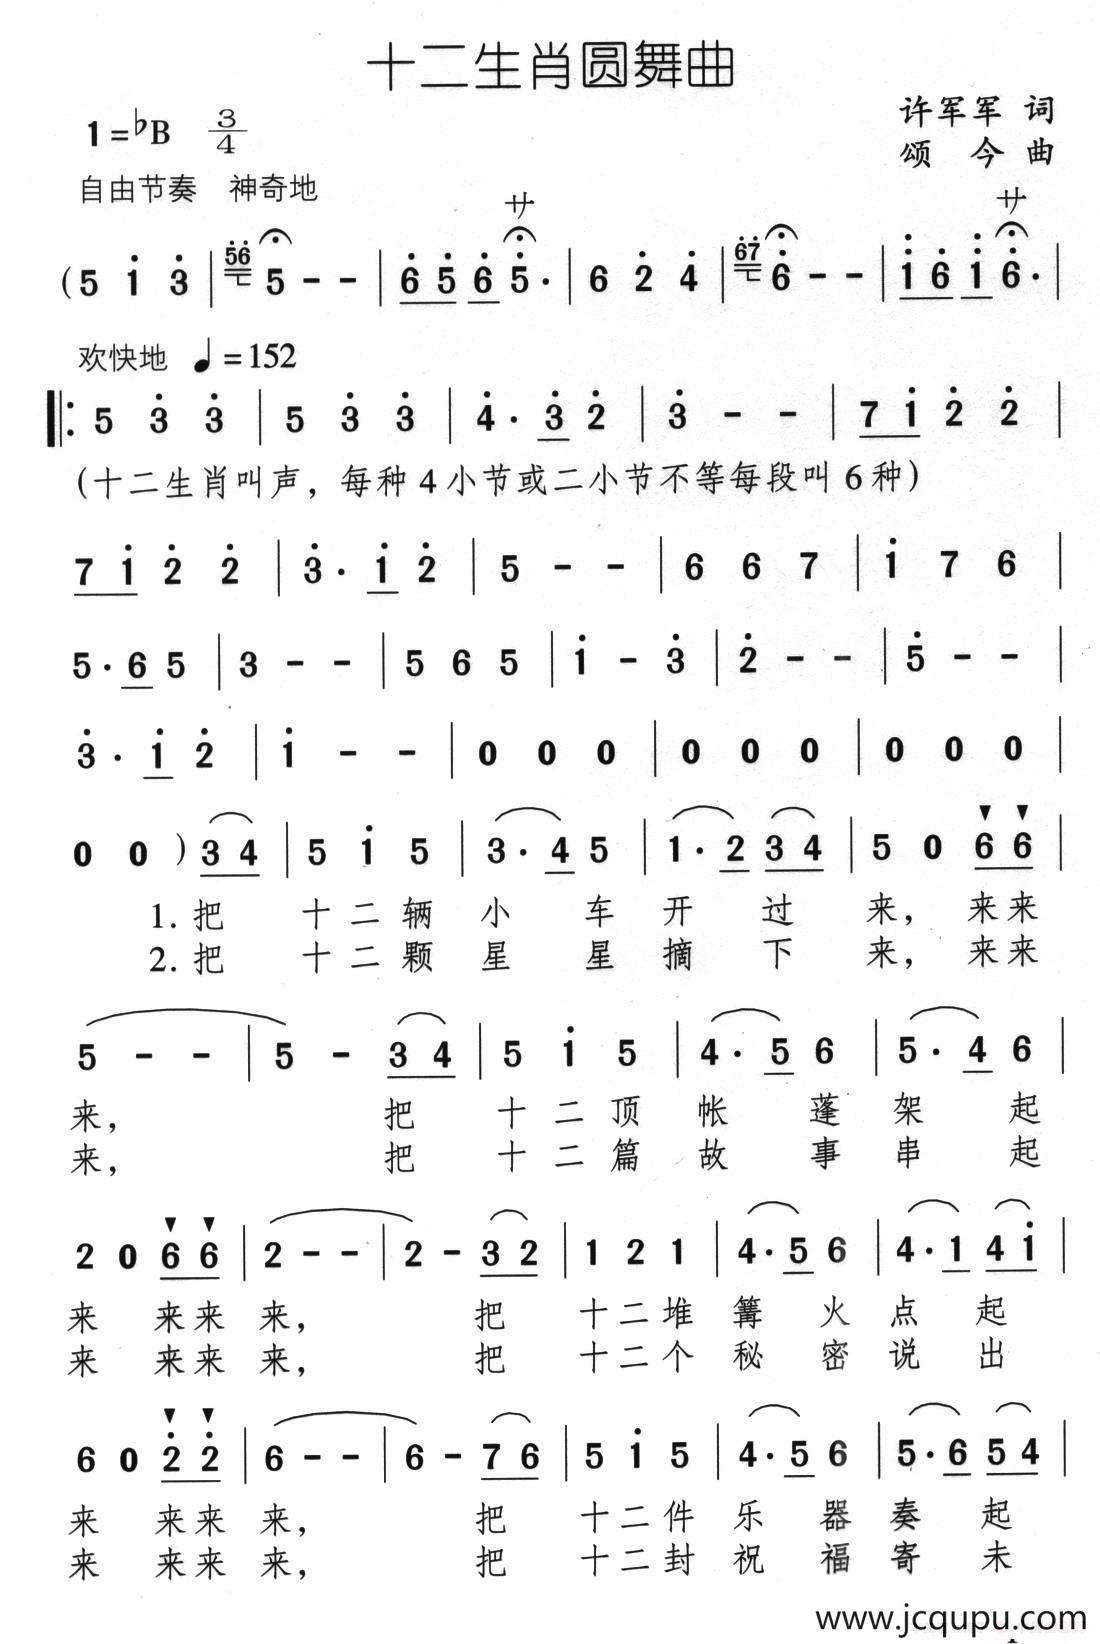 十二生肖圆舞曲
1=♭B 3/4
许军军 词
颂 今 曲
自由节奏 神奇地
サ サ
(5 1̇ 3̇ | 5̇6̇ 5 - - | 6̇ 5̇ 6̇ 5̇· | 6 2̇ 4̇ | 6̇7̇ 6̇ - - | 1̇ 6̇ 1̇ 6̇· |
欢快地 ♩=152
‖: 5 3̇ 3̇ | 5 3̇ 3̇ | 4̇· 3̇ 2̇ | 3̇ - - | 7 1̇ 2̇ 2̇ |
(十二生肖叫声，每种4小节或二小节不等每段叫6种)
7 1̇ 2̇ 2̇ | 3̇· 1̇ 2̇ | 5 - - | 6 6 7 | 1̇ 7 6 |
5· 6 5 | 3 - - | 5 6 5 | 1̇ - 3̇ | 2̇ - - | 5̇ - - |
3̇· 1̇ 2̇ | 1̇ - - | 0 0 0 | 0 0 0 | 0 0 0 |
0 0 ) 3 4 | 5 1̇ 5 | 3· 4 5 | 1· 2 3 4 | 5 0 6 6 |
1. 把 十二辆 小 车 开 过 来，来来
2. 把 十二颗 星 星 摘 下 来，来来
5 - - | 5 - 3 4 | 5 1̇ 5 | 4· 5 6 | 5· 4 6 |
来， 把 十二顶 帐 蓬 架 起
来， 把 十二篇 故 事 串 起
2 0 6 6 | 2 - - | 2 - 3 2 | 1 2 1 | 4· 5 6 | 4· 1 4 1̇ |
来 来来 来， 把 十二堆 篝 火 点 起
来 来来 来， 把 十二个 秘 密 说 出
6 0 2̇ 2̇ | 6 - - | 6 - 7 6 | 5 1̇ 5 | 4· 5 6 | 5· 6 5 4 |
来 来来 来， 把 十二件 乐 器 奏 起
来 来来 来， 把 十二封 祝 福 寄 未
www.jcqupu.com